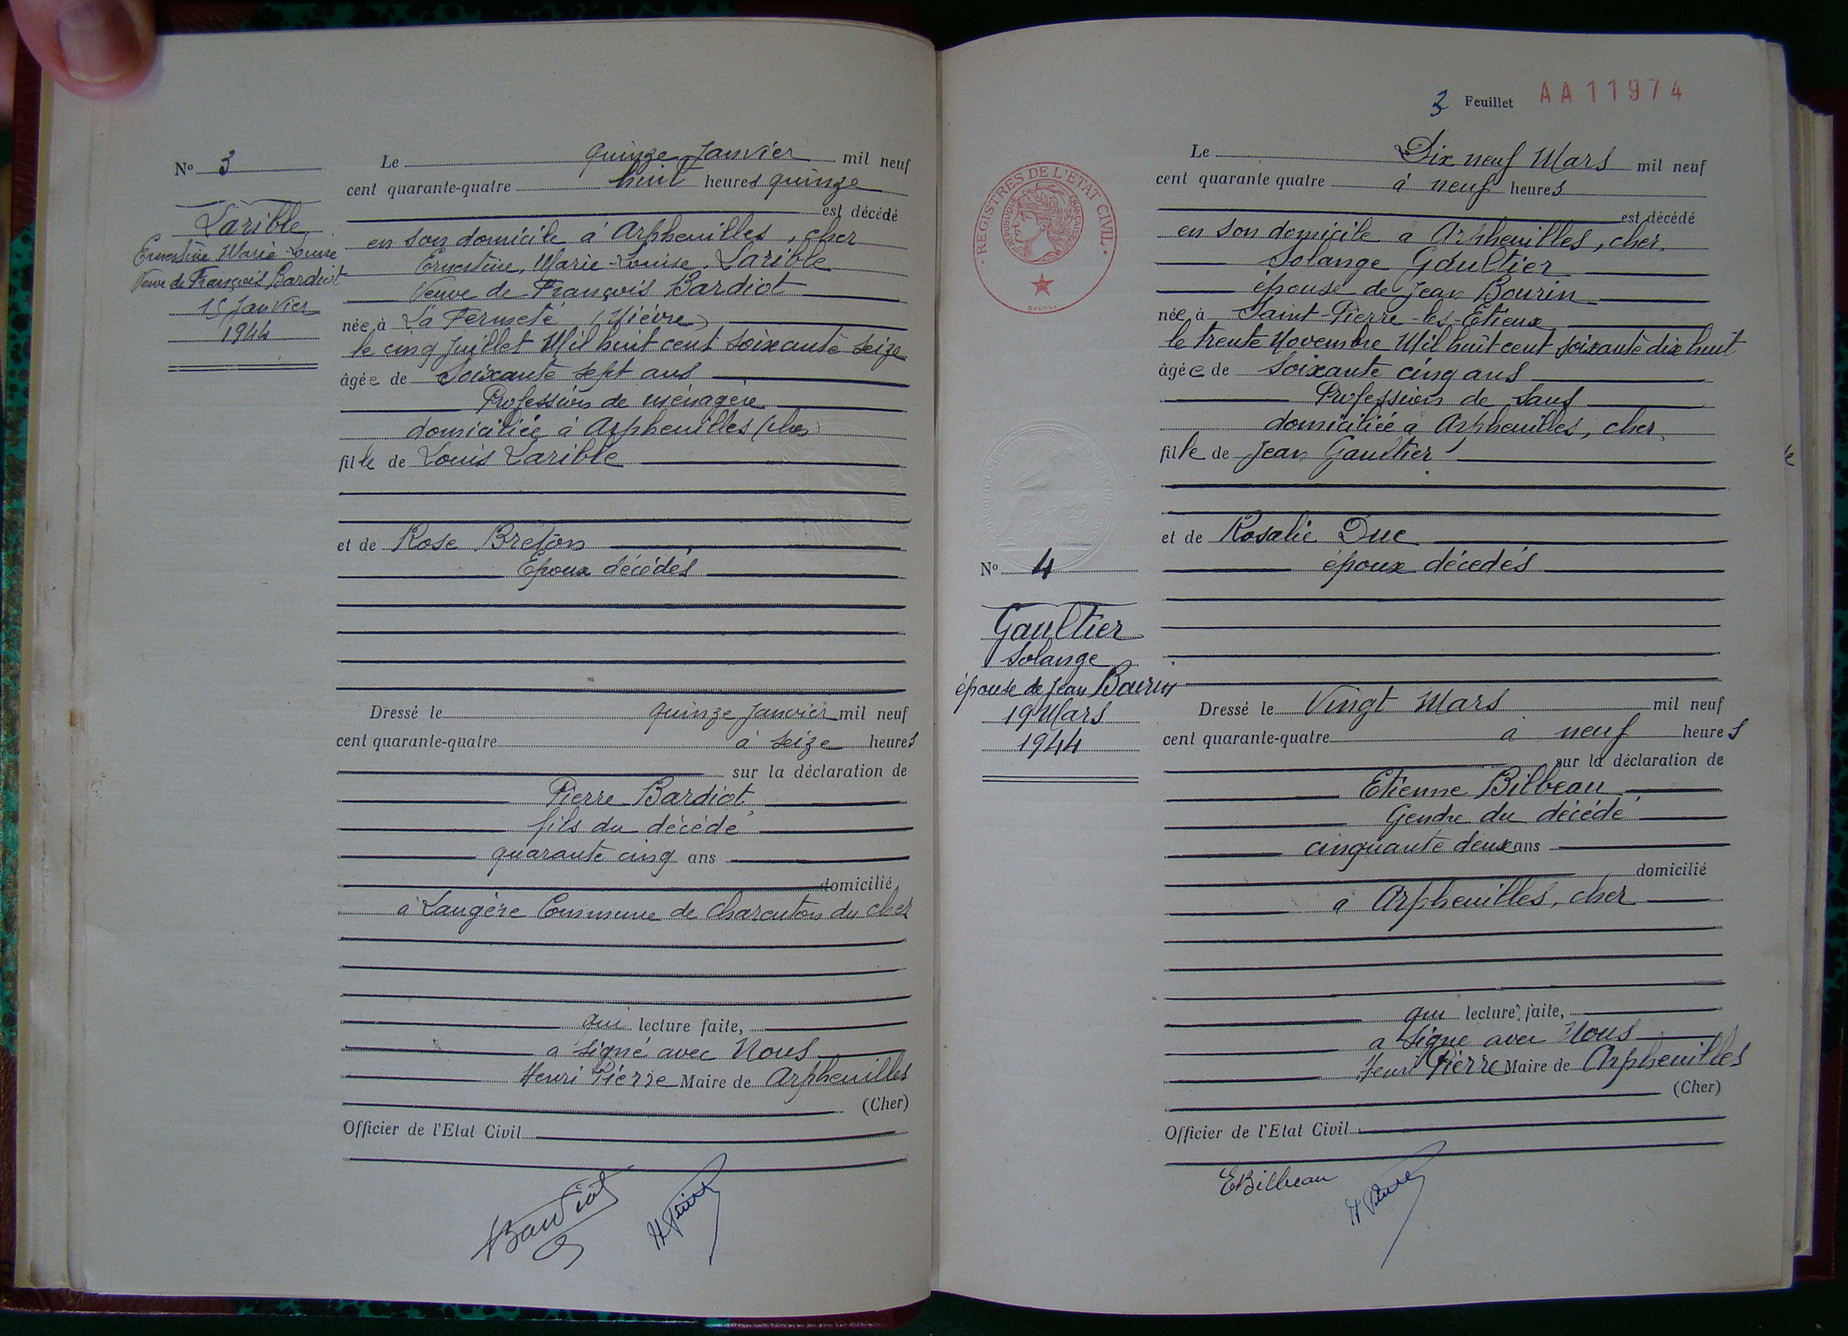 N° 3
Larible
Ernestine Marie-Louise
Veuve de François Bardiot
15 Janvier
1944
Le quinze Janvier mil neuf
cent quarante-quatre huit heures quinze
est décédé
en son domicile à Arpheuilles, cher
Ernestine, Marie-Louise, Larible
Veuve de François Bardiot
née à La Fermeté (Nièvre)
le cinq Juillet Mil huit cent soixante seize
âgée de Soixante sept ans
Profession de ménagère
domiciliée à Arpheuilles (cher)
fille de Louis Larible
et de Rose Breton
Epoux décédés
Dressé le quinze Janvier mil neuf
cent quarante-quatre à seize heures
sur la déclaration de
Pierre Bardiot
fils du décédé
quarante cinq ans
domicilié
à Laugère Commune de Charenton du cher
qui lecture faite,
a signé avec Nous
Henri Pierre Maire de Arpheuilles
(Cher)
Officier de l'Etat Civil
Bardiot
H Pierre
3 Feuillet AA11974
REGISTRES DE L'ETAT CIVIL
Le Dix neuf Mars mil neuf
cent quarante quatre à neuf heures
est décédé
en son domicile a Arpheuilles, cher.
Solange Gaultier
épouse de Jean Bourin
née à Saint-Pierre-les-Etieux
le trente Novembre Mil huit cent soixante dix huit
âgée de Soixante cinq ans
Profession de sans
domiciliée à Arpheuilles, cher.
fille de Jean Gaultier
et de Rosalie Duc
époux décedés
N° 4
Gaultier
Solange
épouse de Jean Bourin
19 Mars
1944
Dressé le Vingt Mars mil neuf
cent quarante-quatre à neuf heures
sur la déclaration de
Etienne Bilbeau
Gendre du décédé
cinquante deux ans
domicilié
à Arpheuilles, cher
qui lecture faite,
a signé avec Nous
Henri Pierre Maire de Arpheuilles
(Cher)
Officier de l'Etat Civil
EBilbeau
H Pierre